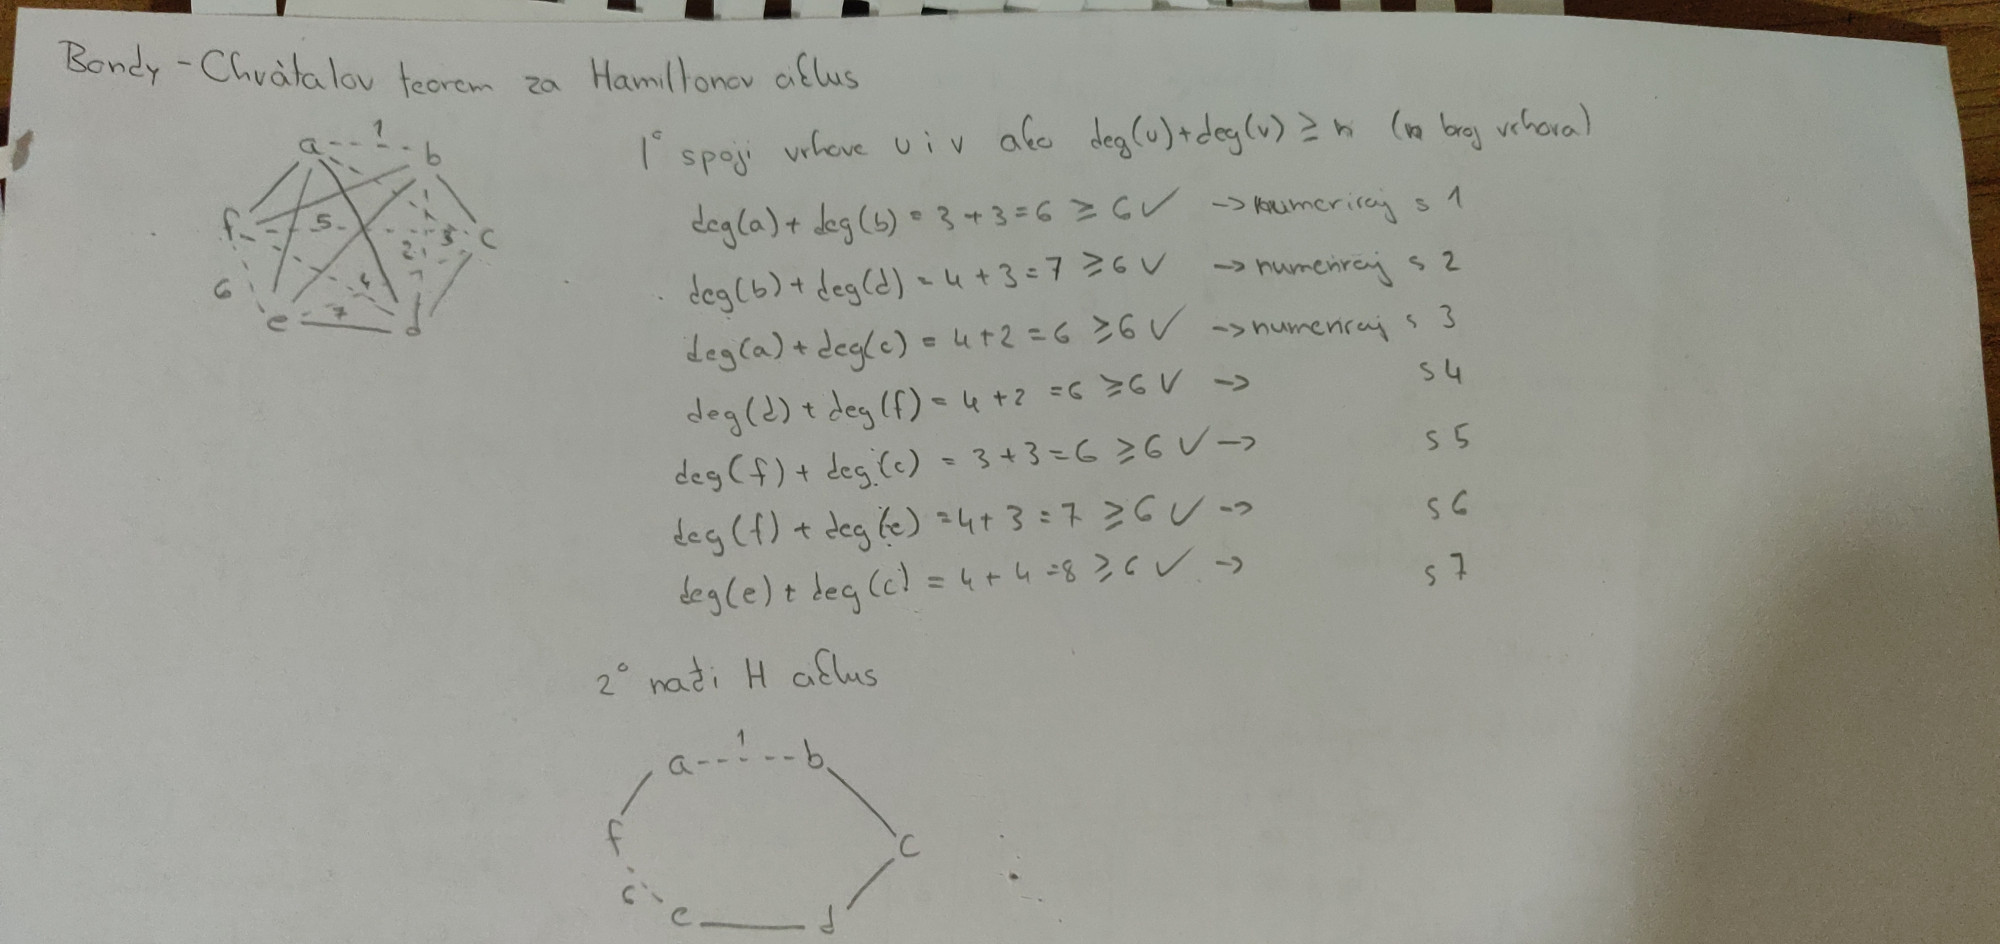 Bondy - Chvàtalov teorem za Hamiltonov ciklus
1° spoji vrhove u i v ako deg(u)+deg(v) ≥ n (n broj vrhova)
a 1 b
f 5 3 c
2
6 4
e 7 d
deg(a) + deg(b) = 3 + 3 = 6 ≥ 6 ✓ -> numeriraj s 1
deg(b) + deg(d) = 4 + 3 = 7 ≥ 6 ✓ -> numeriraj s 2
deg(a) + deg(c) = 4 + 2 = 6 ≥ 6 ✓ -> numeriraj s 3
deg(d) + deg(f) = 4 + 2 = 6 ≥ 6 ✓ -> s 4
deg(f) + deg(c) = 3 + 3 = 6 ≥ 6 ✓ -> s 5
deg(f) + deg(e) = 4 + 3 = 7 ≥ 6 ✓ -> s 6
deg(e) + deg(c) = 4 + 4 = 8 ≥ 6 ✓ -> s 7
2° nađi H ciklus
a 1 b
f c
6
e d